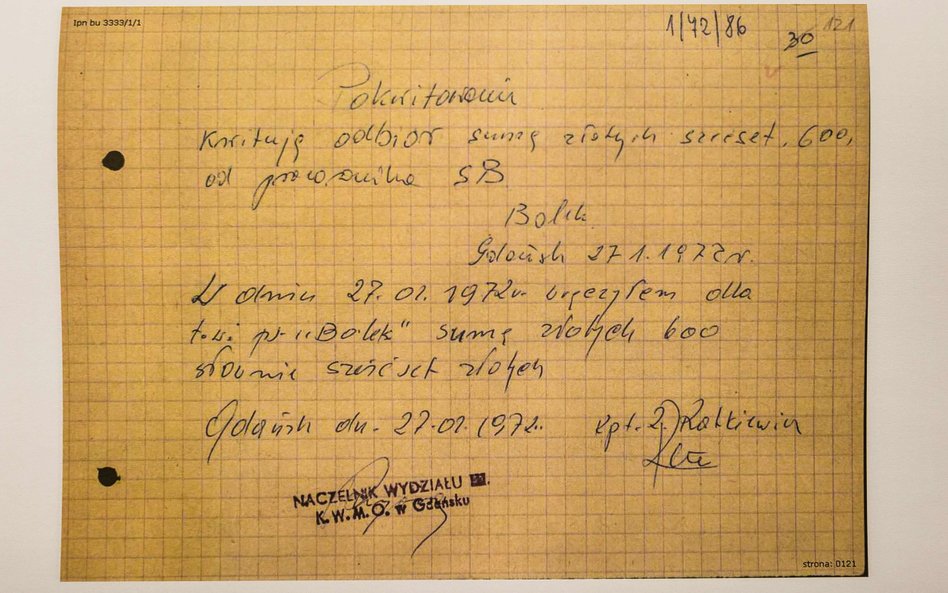 Ipn bu 3333/1/1
1/72/86
30
121
Pokwitowanie
Kwituję odbiór sumę złotych szeset, 600,
od pracownika SB
Bolek
Gdańsk 27 1.1972r.
W dniu 27.01.1972r. wręczyłem dla
t.w. ps. „Bolek” sumę złotych 600
słownie sześćset złotych
Gdańsk dn. 27.01.1972r. kpt. Z. Ratkiewicz
NACZELNIK WYDZIAŁU III.
K.W.M.O. w Gdańsku
strona: 0121